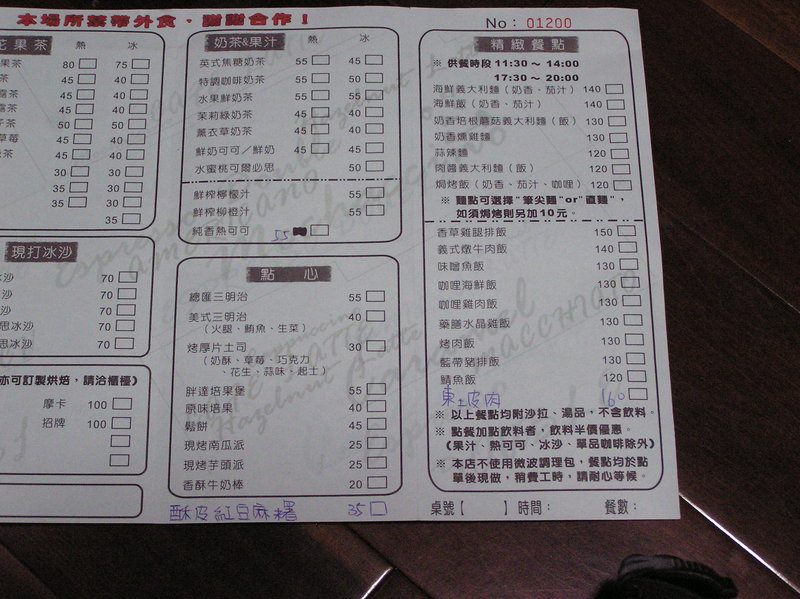 本場所禁帶外食，謝謝合作！
No： 01200
花果茶 熱 冰
果茶 80 75
茶 45 40
露茶 45 40
露茶 45 40
子茶 50 50
草莓 45 40
綠茶 45 40
30 40
35 30
30 35
35
現打冰沙
冰沙 70
沙 70
沙 70
思冰沙 70
思冰沙 70
亦可訂製烘焙，請洽櫃檯）
摩卡 100
招牌 100
奶茶&果汁 熱 冰
英式焦糖奶茶 55 45
特調咖啡奶茶 55 50
水果鮮奶茶 55 50
茉莉綠奶茶 45 40
薰衣草奶茶 45 40
鮮奶可可／鮮奶 55 45
水蜜桃可爾必思 50
鮮榨檸檬汁 55 55
鮮榨柳橙汁 55 55
純香熱可可 55
點 心
總匯三明治 55
美式三明治 40
（火腿、鮪魚、生菜）
烤厚片土司 30
（奶酥、草莓、巧克力
、花生、蒜味、起士）
胖達培果堡 55
原味培果 40
鬆餅 45
現烤南瓜派 25
現烤芋頭派 25
香酥牛奶棒 20
酥皮紅豆麻糬 35
精緻餐點
※ 供餐時段 11:30 ~ 14:00
17:30 ~ 20:00
海鮮義大利麵（奶香、茄汁） 140
海鮮飯（奶香、茄汁） 140
奶香培根蘑菇義大利麵（飯） 130
奶香燻雞麵 130
蒜辣麵 120
肉醬義大利麵（飯） 120
焗烤飯（奶香、茄汁、咖哩） 120
※ 麵點可選擇"筆尖麵"or"直麵"，
如須焗烤則另加10元。
香草雞腿排飯 150
義式燉牛肉飯 140
味噌魚飯 130
咖哩海鮮飯 130
咖哩雞肉飯 130
藥膳水晶雞飯 130
烤肉飯 130
藍帶豬排飯 130
鯖魚飯 120
東坡肉 160
※ 以上餐點均附沙拉、湯品，不含飲料。
※ 點餐加點飲料者，飲料半價優惠。
（果汁、熱可可、冰沙、單品咖啡除外）
※ 本店不使用微波調理包，餐點均於點
單後現做，稍費工時，請耐心等候。
桌號【 】時間： 餐數：